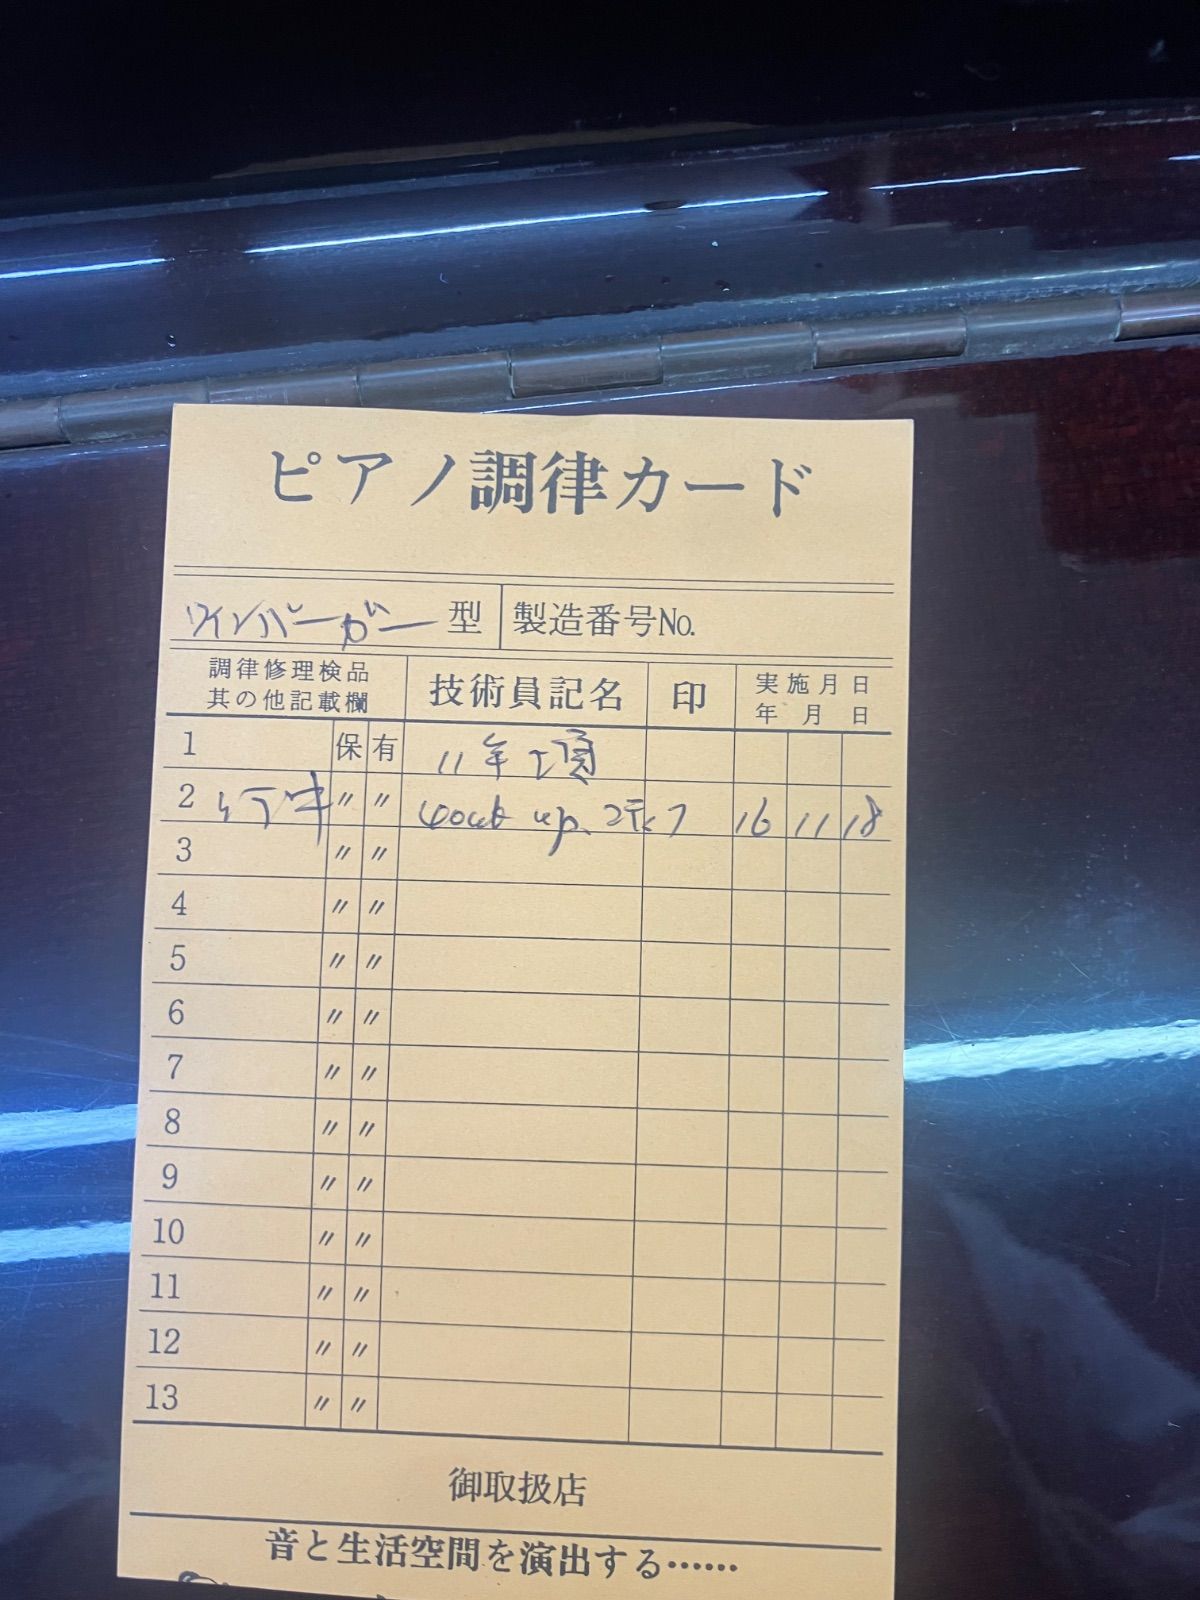 ピアノ調律カード
ワインバーガー 型 製造番号No.
調律修理検品 其の他記載欄 技術員記名 印 実施月日 年 月 日
1 保 有 11年頃
2 〃 〃 up. 16 11 18
3 〃 〃
4 〃 〃
5 〃 〃
6 〃 〃
7 〃 〃
8 〃 〃
9 〃 〃
10 〃 〃
11 〃 〃
12 〃 〃
13 〃 〃
御取扱店
音と生活空間を演出する……